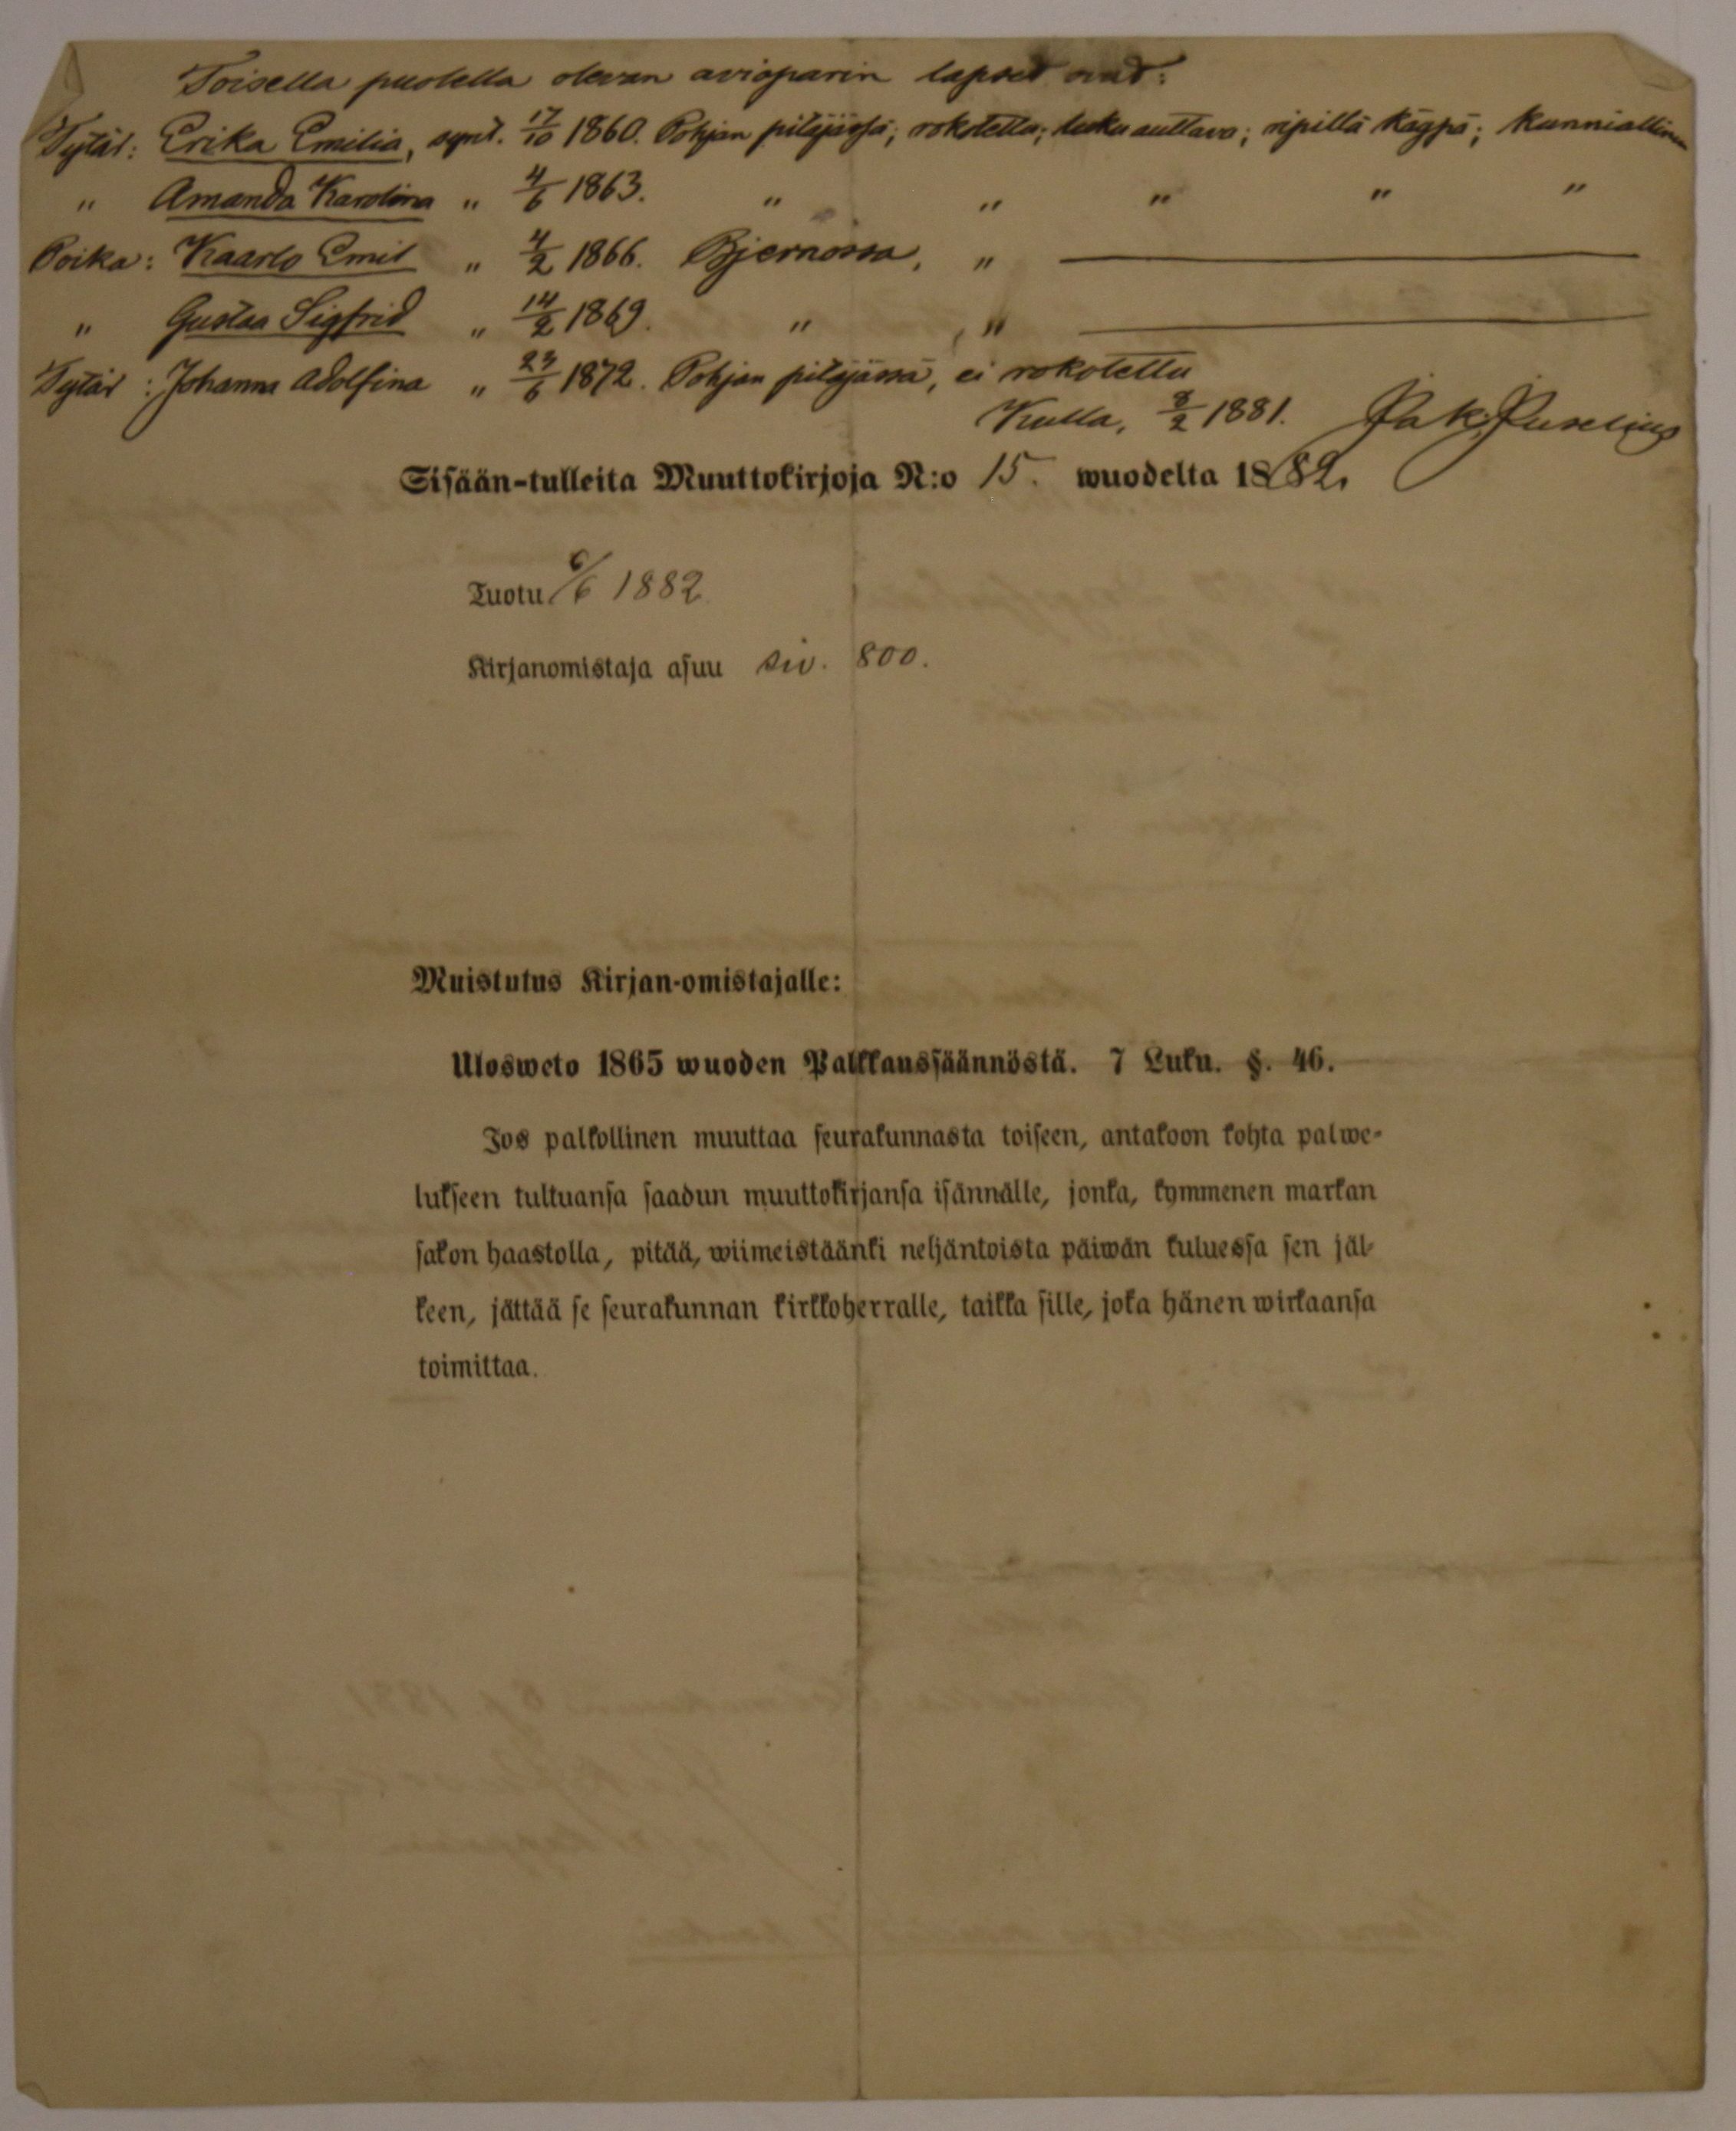 Toisella puolella olevan avioparin lapset ovat:
Tytär: Erika Emilia, synt. 17/10 1860. Pohjan pitäjässä; rokotettu; luku auttava; ripillä käypä; kunniallinen
" Amanda Karolina " 4/6 1863. " " " " "
Poika: Kaarlo Emil " 4/2 1866. Bjernossa, " —
" Gustaa Sigfrid " 14/2 1869. " , " —
Tytär: Johanna Adolfina " 23/6 1872. Pohjan pitäjässä, ei rokotettu
Kulla, 8/2 1881. Jak. Juselius
Sisään-tulleita Muuttokirjoja N:o 15. wuodelta 1882.
Tuotu 6/6 1882
Kirjanomistaja asuu siv. 800.
Muistutus Kirjan-omistajalle:
Ulosweto 1865 wuoden Palkkaussäännöstä. 7 Luku. §. 46.
Jos palkollinen muuttaa seurakunnasta toiseen, antakoon kohta palwe-
lukseen tultuansa saadun muuttokirjansa isännälle, jonka, kymmenen markan
sakon haastolla, pitää, wiimeistäänki neljäntoista päiwän kuluessa sen jäl-
keen, jättää se seurakunnan kirkkoherralle, taikka sille, joka hänen wirkaansa
toimittaa.